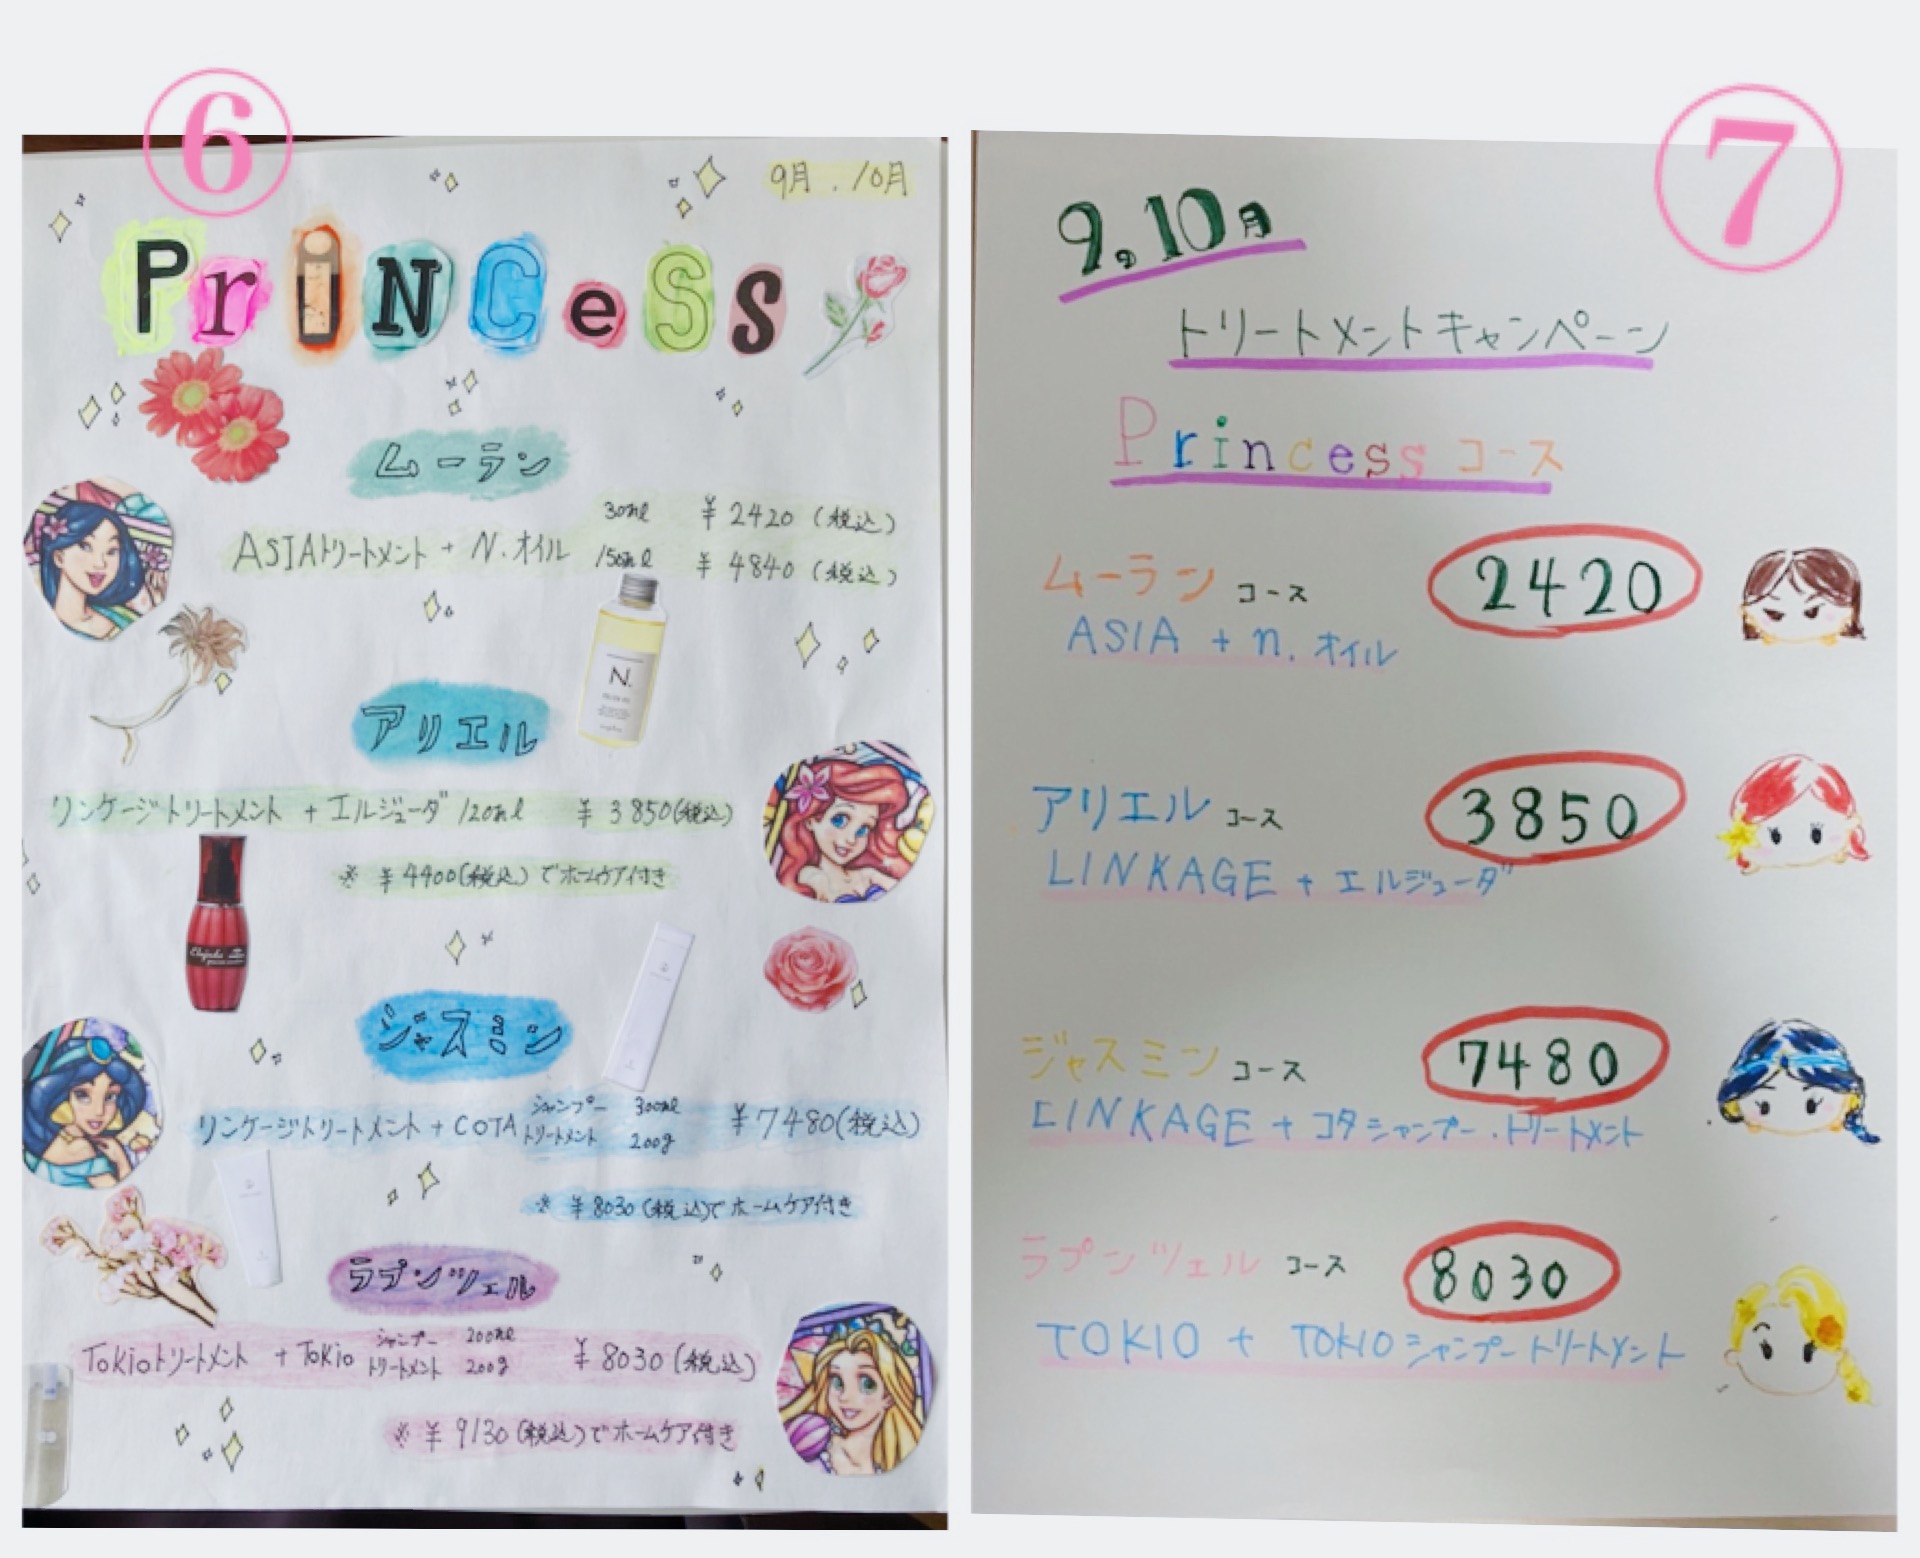 6
9月.10月
Princess
ムーラン
ASIAトリートメント + N.オイル
30ml ¥2420(税込)
150ml ¥4840(税込)
N.
アリエル
リンケージトリートメント + エルジューダ 120ml ¥3850(税込)
※ ¥4400(税込)でホームケア付き
Elujuda
ジャスミン
リンケージトリートメント + COTA シャンプー 300ml トリートメント 200g ¥7480(税込)
※ ¥8030(税込)でホームケア付き
ラプンツェル
Tokioトリートメント + Tokio シャンプー 200ml トリートメント 200g ¥8030(税込)
※ ¥9130(税込)でホームケア付き
7
9.10月
トリートメントキャンペーン
Princessコース
ムーランコース 2420
ASIA + n.オイル
アリエルコース 3850
LINKAGE + エルジューダ
ジャスミンコース 7480
LINKAGE + コタシャンプー.トリートメント
ラプンツェルコース 8030
TOKIO + TOKIOシャンプートリートメント